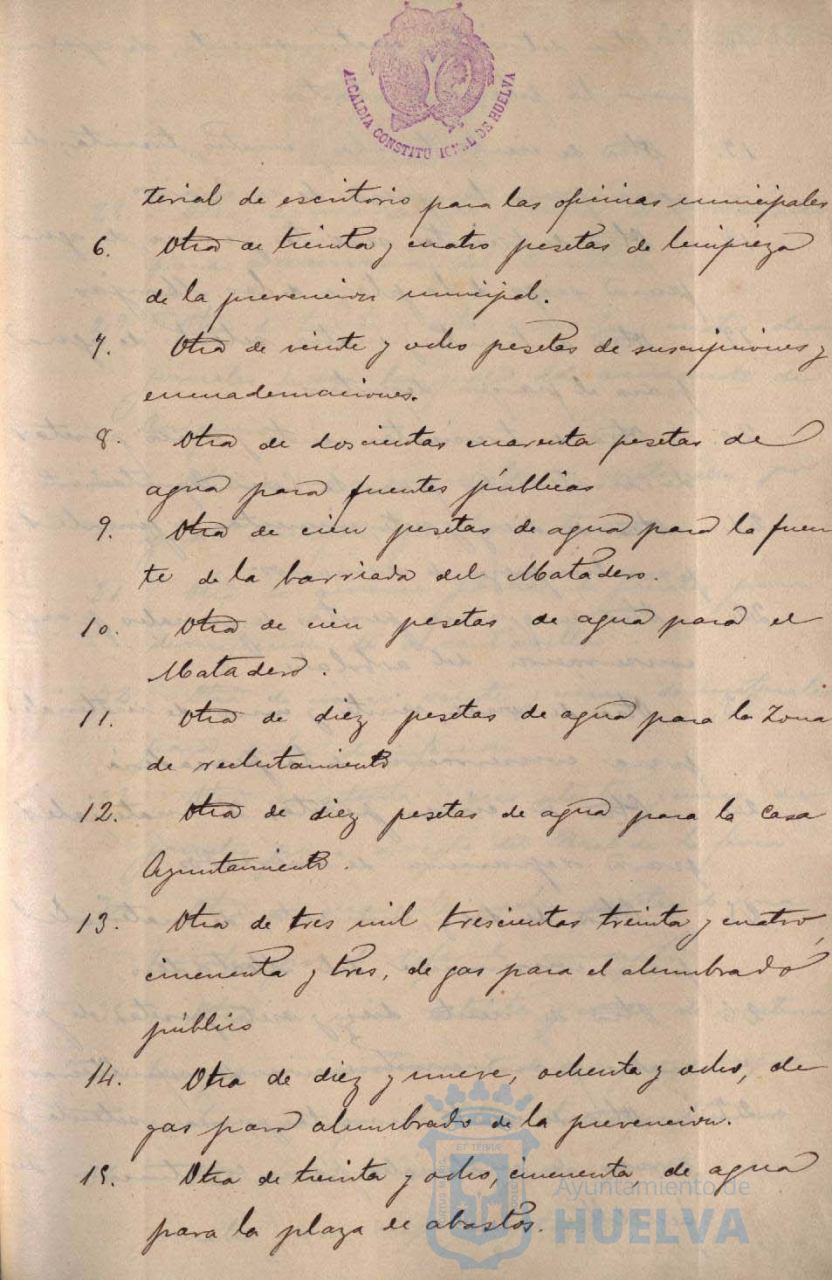 ALCALDIA CONSTITUCIONAL DE HUELVA
terial de escritorio para las oficinas municipales
6. Otra de treinta y cuatro pesetas de limpieza
de la prevencion municipal.
7. Otra de veinte y ocho pesetas de suscripciones y
encuadernaciones.
8. Otra de doscientas cuarenta pesetas de
agua para fuentes públicas
9. Otra de cien pesetas de agua para la fuen
te de la barriada del Matadero.
10. Otra de cien pesetas de agua para el
Matadero.
11. Otra de diez pesetas de agua para la Zona
de reclutamiento
12. Otra de diez pesetas de agua para la Casa
Ayuntamiento.
13. Otra de tres mil trescientas treinta y cuatro,
cincuenta y tres, de gas para el alumbrado
público
14. Otra de diez y nueve, ochenta y ocho, de
gas para alumbrado de la prevencion.
15. Otra de treinta y ocho, cincuenta, de agua
para la plaza de abastos.
Ayuntamiento de
HUELVA